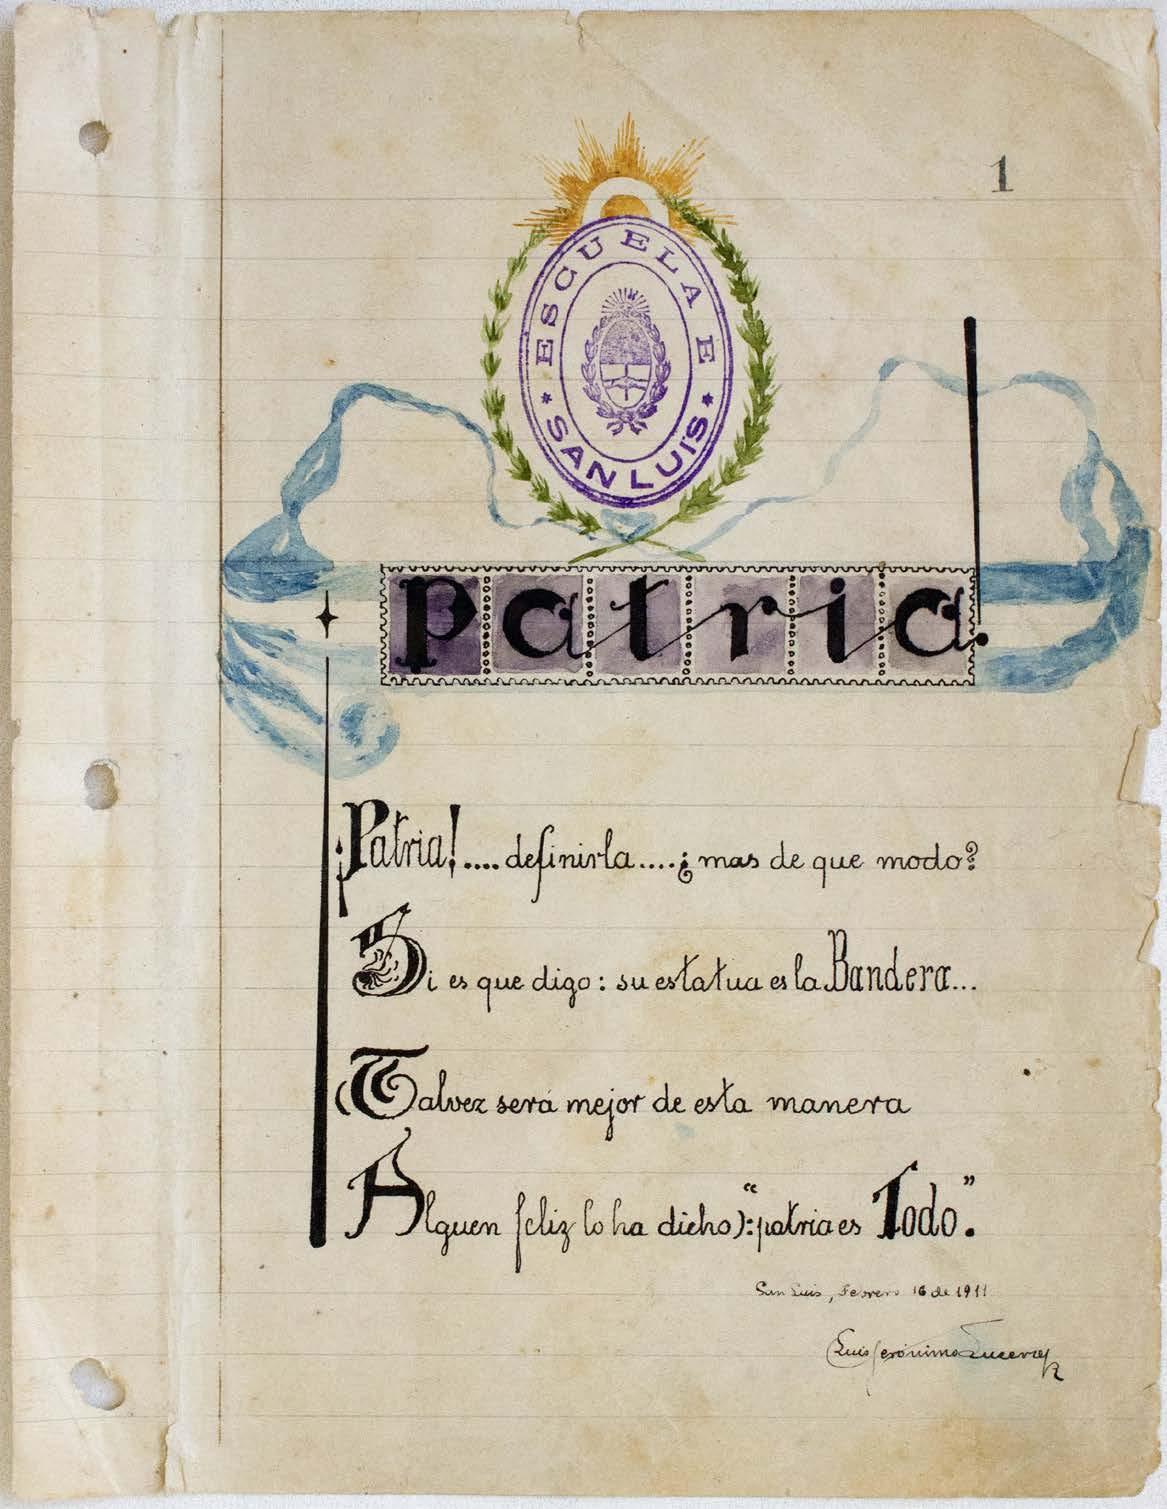 1
ESCUELA E
* SAN LUIS *
Patria.
¡Patria!....definirla....¿mas de que modo?
Si es que digo: su estatua es la Bandera...
(Talvez será mejor de esta manera
Alguen feliz lo ha dicho): "patria es Todo".
San Luis, Febrero 16 de 1911
Luis Jerónimo Lucero